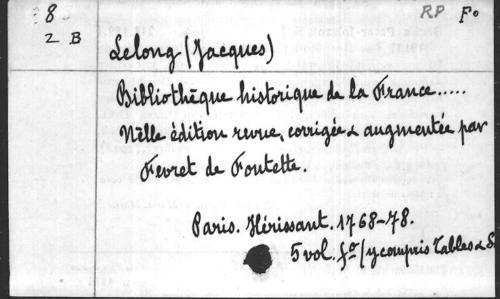 8 RP Fo
2 B
Lelong (Jacques)
Bibliothèque historique de la France.....
Nelle édition revue, corrigée & augmentée par
Fevret de Fontette.
Paris. Hérissant. 1768-78.
5 vol. fo (y compris Tables & S.